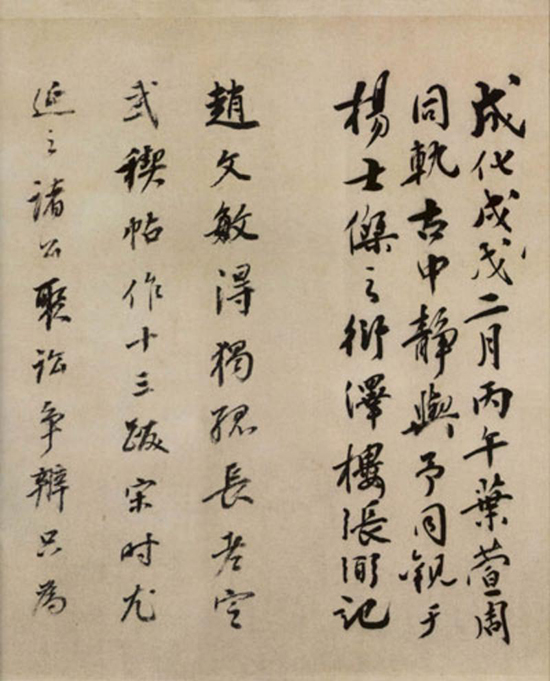 成化戊戌二月丙午葉萱周
同軌古中靜與予同觀于
楊士傑之衍澤樓張弼記
趙文敏得獨孤長老定
武禊帖作十三跋宋時尤
延之諸公聚訟争辨只為